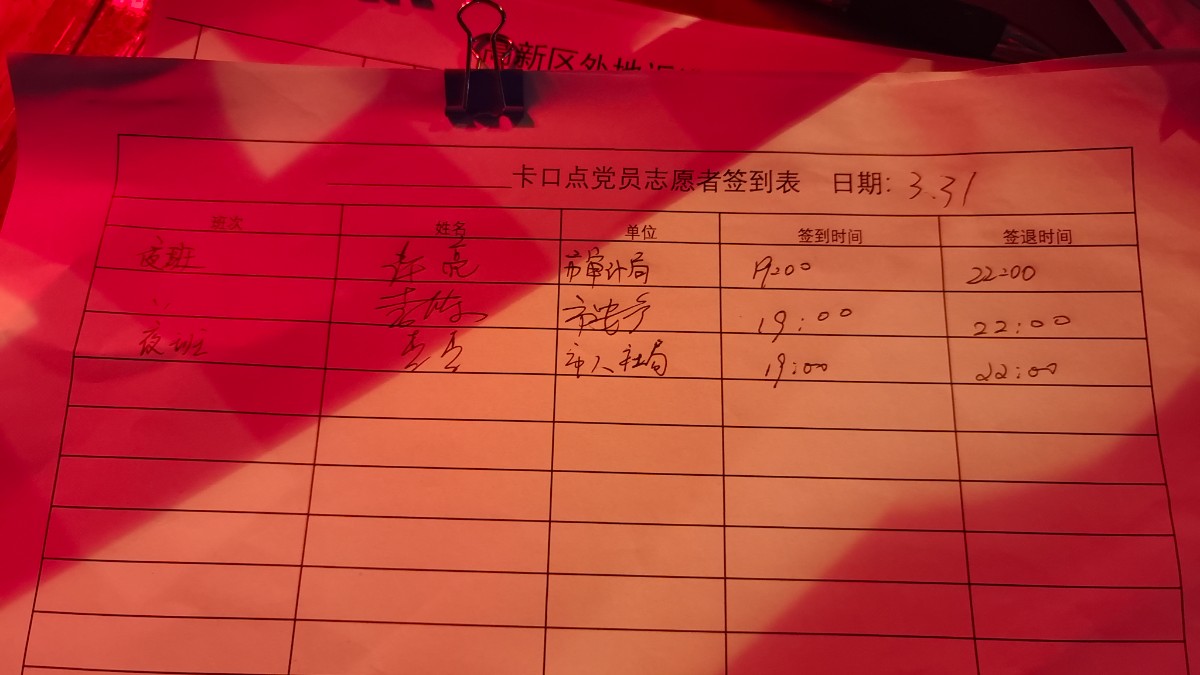 高新区外地返
卡口点党员志愿者签到表 日期: 3.31
班次 姓名 单位 签到时间 签退时间
夜班 亮 市审计局 19:00 22:00
19:00 22:00
夜班 市人社局 19:00 22:00